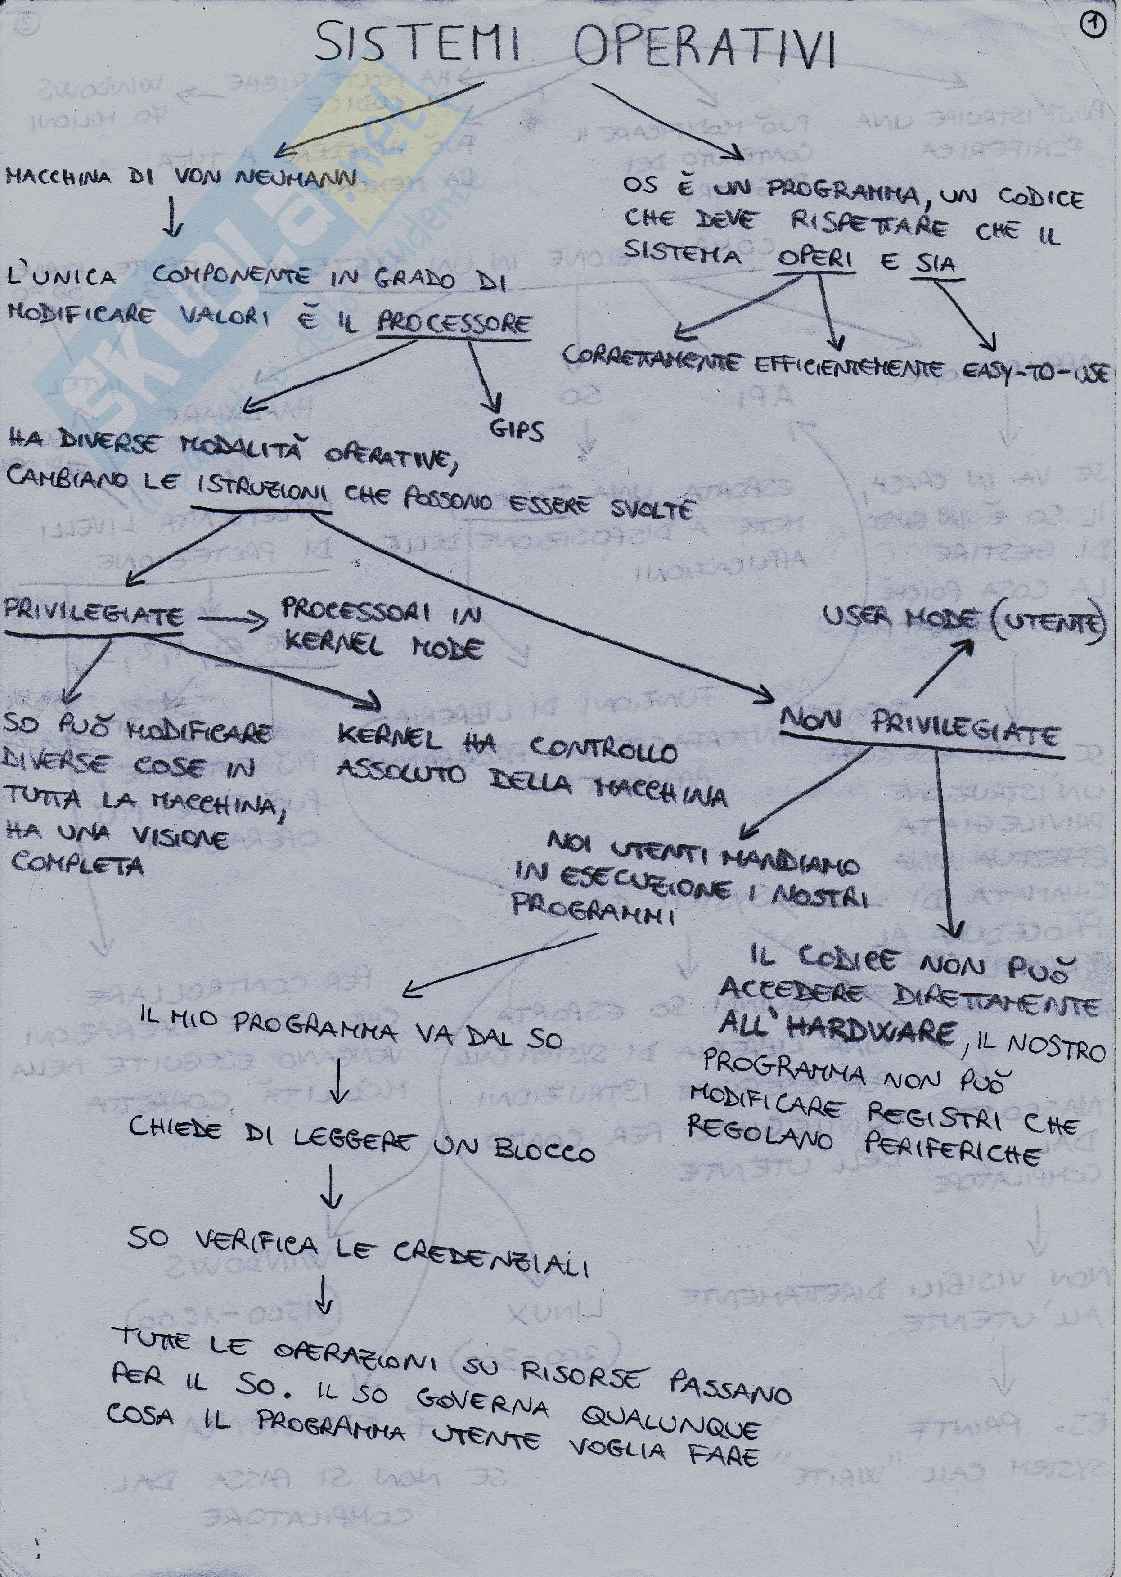 1
SISTEMI OPERATIVI
MACCHINA DI VON NEUMANN
OS È UN PROGRAMMA, UN CODICE
CHE DEVE RISPETTARE CHE IL
SISTEMA OPERI E SIA
L'UNICA COMPONENTE IN GRADO DI
MODIFICARE VALORI È IL PROCESSORE
CORRETTAMENTE EFFICIENTEMENTE EASY-TO-USE
GIPS
HA DIVERSE MODALITÀ OPERATIVE,
CAMBIANO LE ISTRUZIONI CHE POSSONO ESSERE SVOLTE
PRIVILEGIATE
PROCESSORI IN
KERNEL MODE
USER MODE (UTENTE)
SO PUÒ MODIFICARE
DIVERSE COSE IN
TUTTA LA MACCHINA,
HA UNA VISIONE
COMPLETA
KERNEL HA CONTROLLO
ASSOLUTO DELLA MACCHINA
NON PRIVILEGIATE
NOI UTENTI MANDIAMO
IN ESECUZIONE I NOSTRI
PROGRAMMI
IL CODICE NON PUÒ
ACCEDERE DIRETTAMENTE
ALL'HARDWARE, IL NOSTRO
PROGRAMMA NON PUÒ
MODIFICARE REGISTRI CHE
REGOLANO PERIFERICHE
IL MIO PROGRAMMA VA DAL SO
CHIEDE DI LEGGERE UN BLOCCO
SO VERIFICA LE CREDENZIALI
TUTTE LE OPERAZIONI SU RISORSE PASSANO
PER IL SO. IL SO GOVERNA QUALUNQUE
COSA IL PROGRAMMA UTENTE VOGLIA FARE
SKUOLA.net